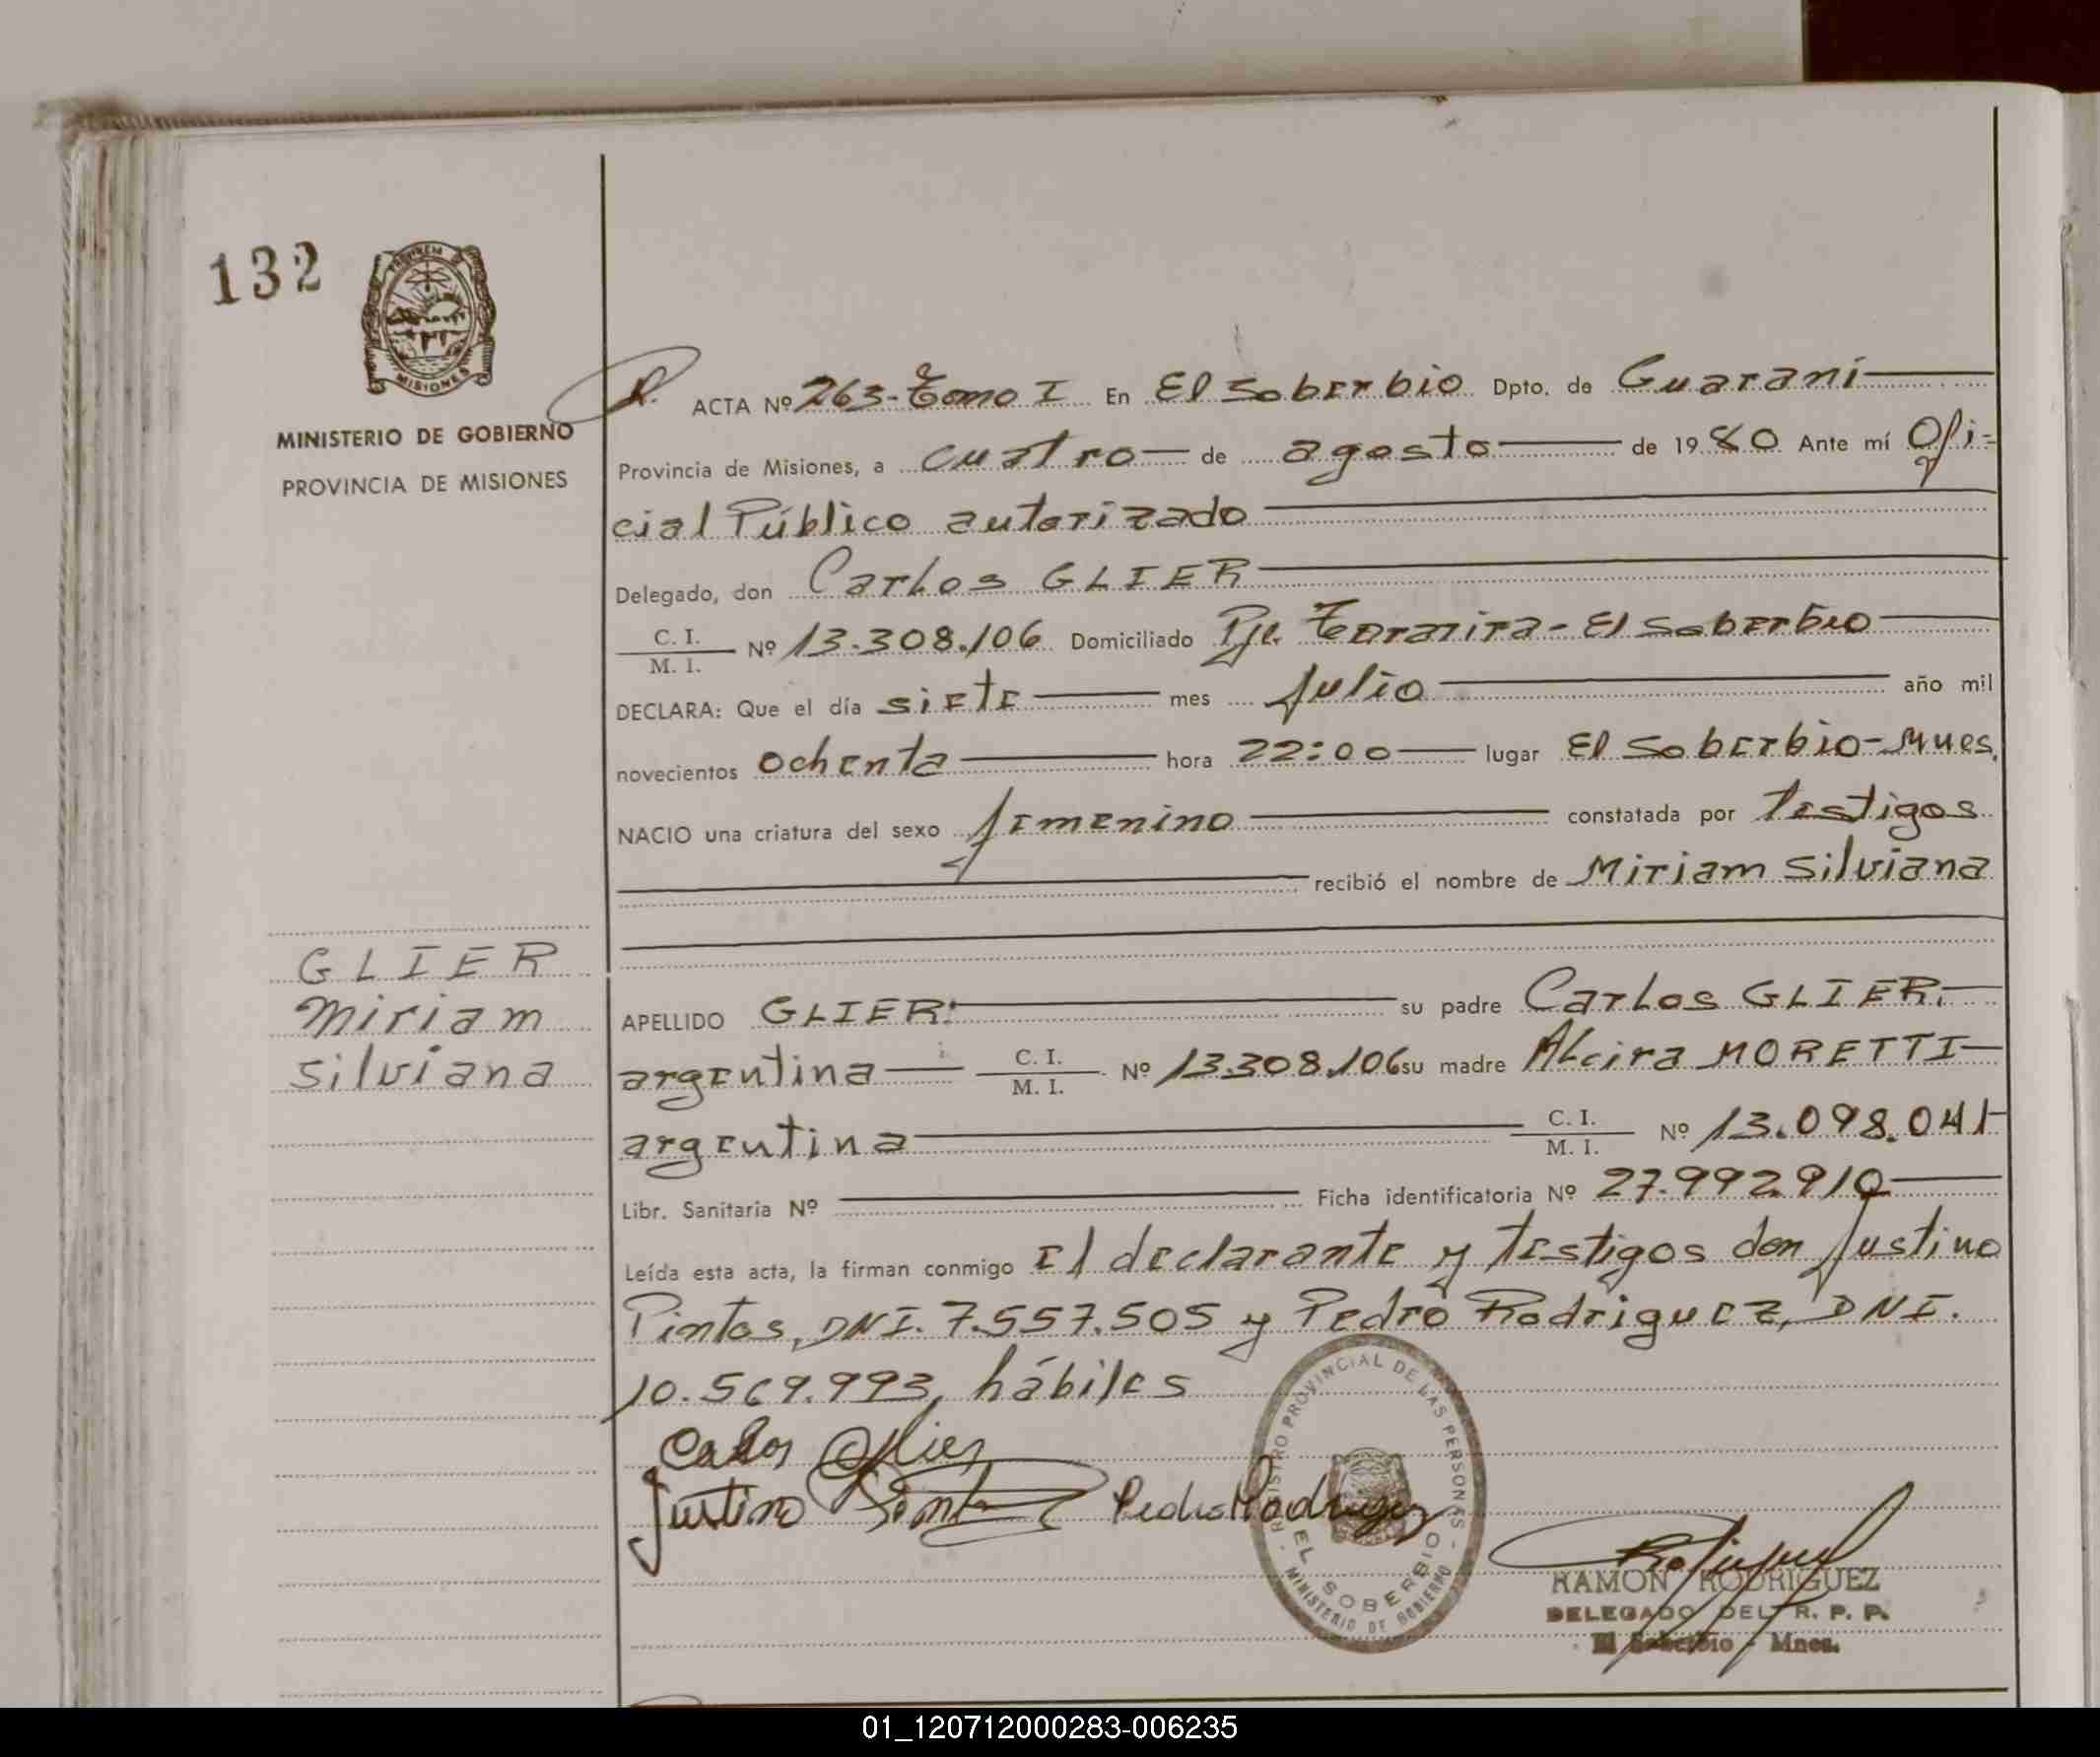 132
PROVINCIA
MISIONES
MINISTERIO DE GOBIERNO
PROVINCIA DE MISIONES
ACTA Nº 263-Tomo I En El Soberbio Dpto. de Guaraní
Provincia de Misiones, a cuatro de agosto de 1980 Ante mí Ofi-
cial Público autorizado
Delegado, don Carlos GLIER
C. I.
M. I. Nº 13.308.106 Domiciliado Pje. - El Soberbio
DECLARA: Que el día siete mes Julio año mil
novecientos ochenta hora 22:00 lugar El Soberbio-Mnes.
NACIO una criatura del sexo femenino constatada por Testigos
recibió el nombre de Miriam Silviana
GLIER
Miriam
Silviana
APELLIDO GLIER su padre Carlos GLIER.
argentina C. I.
M. I. Nº 13.308.106 su madre Alcira MORETTI
argentina C. I.
M. I. Nº 13.098.041
Libr. Sanitaria Nº Ficha identificatoria Nº 27.992.910
Leída esta acta, la firman conmigo El declarante y testigos don Justino
Pintos, DNI. 7.557.505 y Pedro Rodriguez, DNI.
10.569.993, hábiles
Carlos Glier
Justino Pedro Rodriguez
REGISTRO PROVINCIAL DE LAS PERSONAS
EL SOBERBIO
MINISTERIO DE GOBIERNO
RAMON RODRIGUEZ
DELEGADO DEL R. P. P.
El Soberbio - Mnes.
01_120712000283-006235